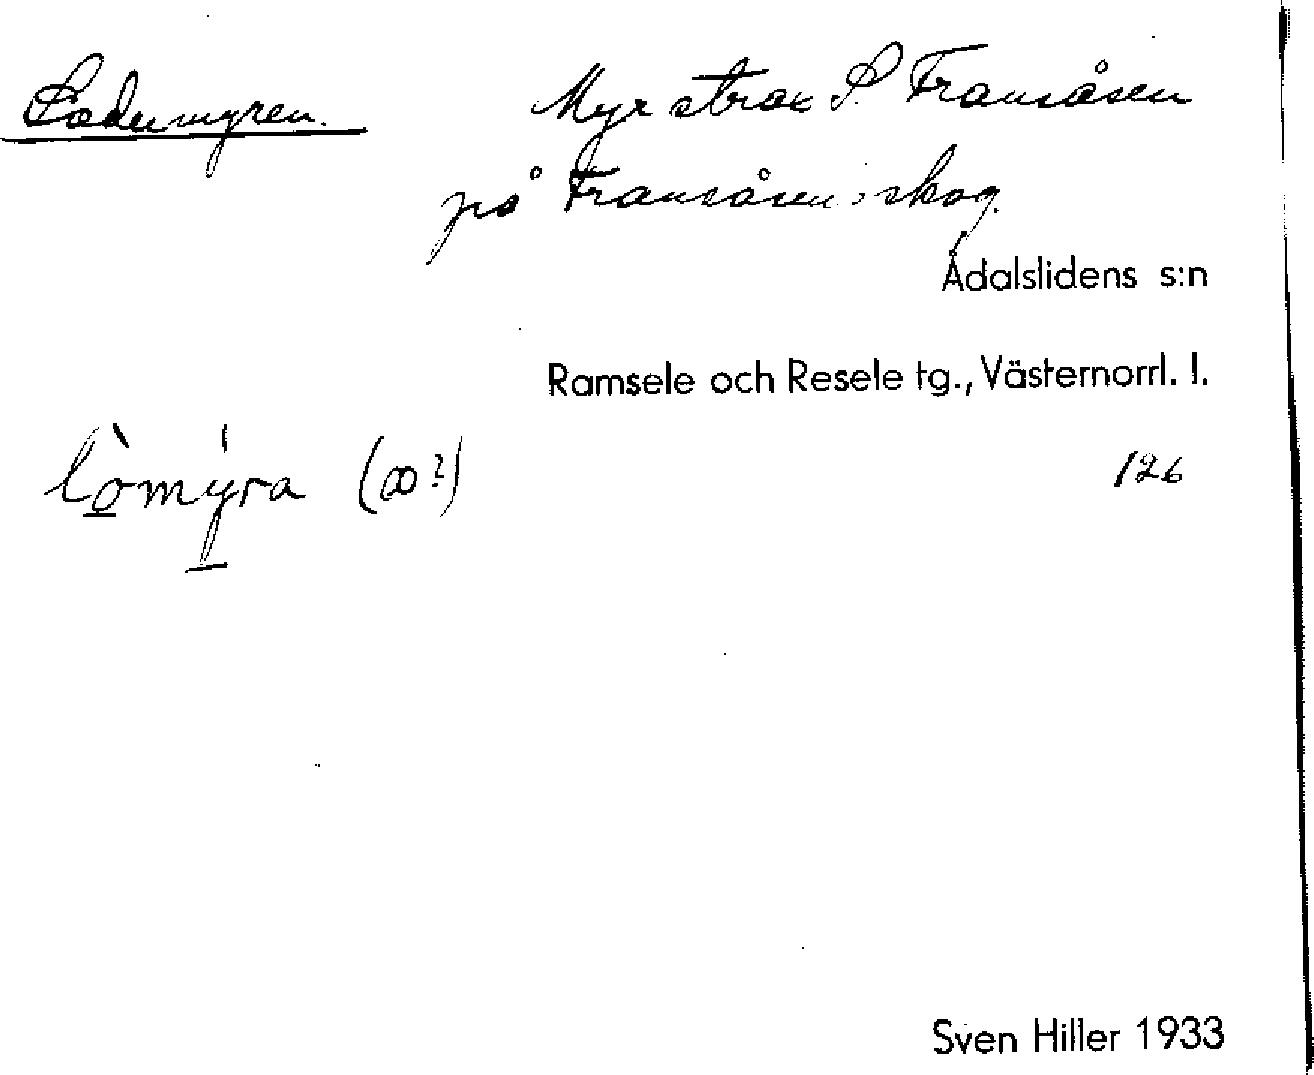 Lademyren. Myr strax S. Fransåsen
på Fransåsens skog.
Ådalslidens s:n
Ramsele och Resele tg., Västernorrl. l.
lòmy̍ra (ꝏ?) 126
Sven Hiller 1933